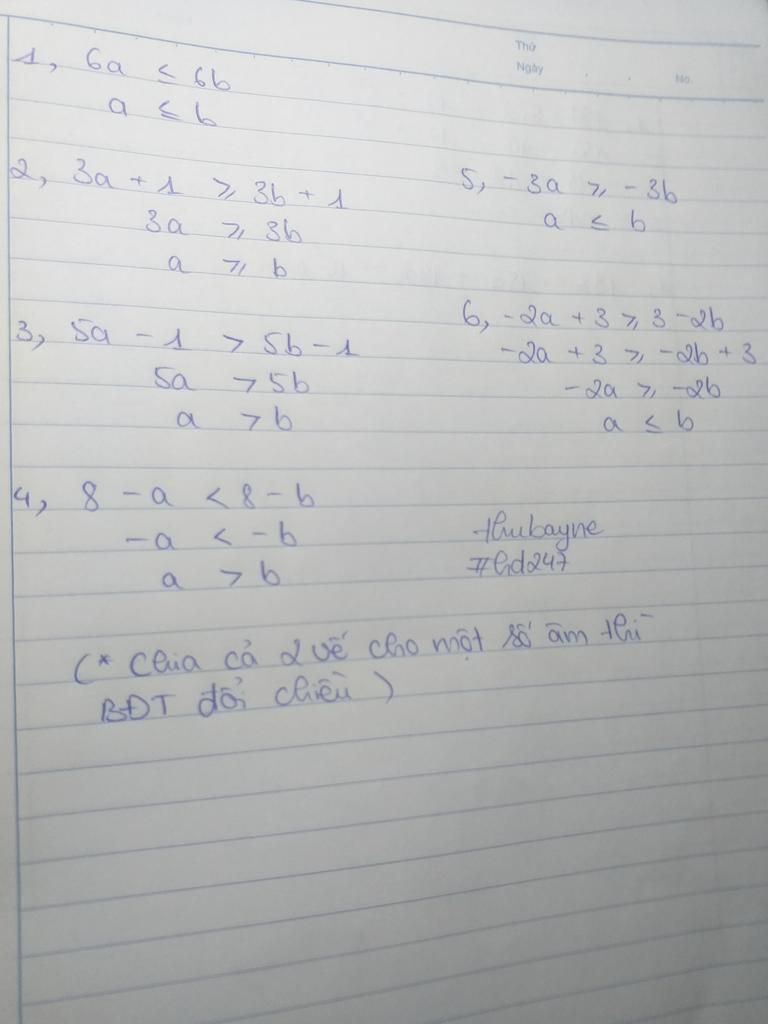 Thứ
Ngày . . No.
1, 6a ≤ 6b
a ≤ b
2, 3a + 1 ⩾ 3b + 1
3a ⩾ 3b
a ⩾ b
3, 5a - 1 > 5b - 1
5a > 5b
a > b
4, 8 - a < 8 - b
-a < -b
a > b
5, -3a ⩾ -3b
a ≤ b
6, -2a + 3 ⩾ 3 - 2b
-2a + 3 ⩾ -2b + 3
-2a ⩾ -2b
a ≤ b
thubayne
#hd247
(* Chia cả 2 vế cho một số âm thì
BĐT đổi chiều)